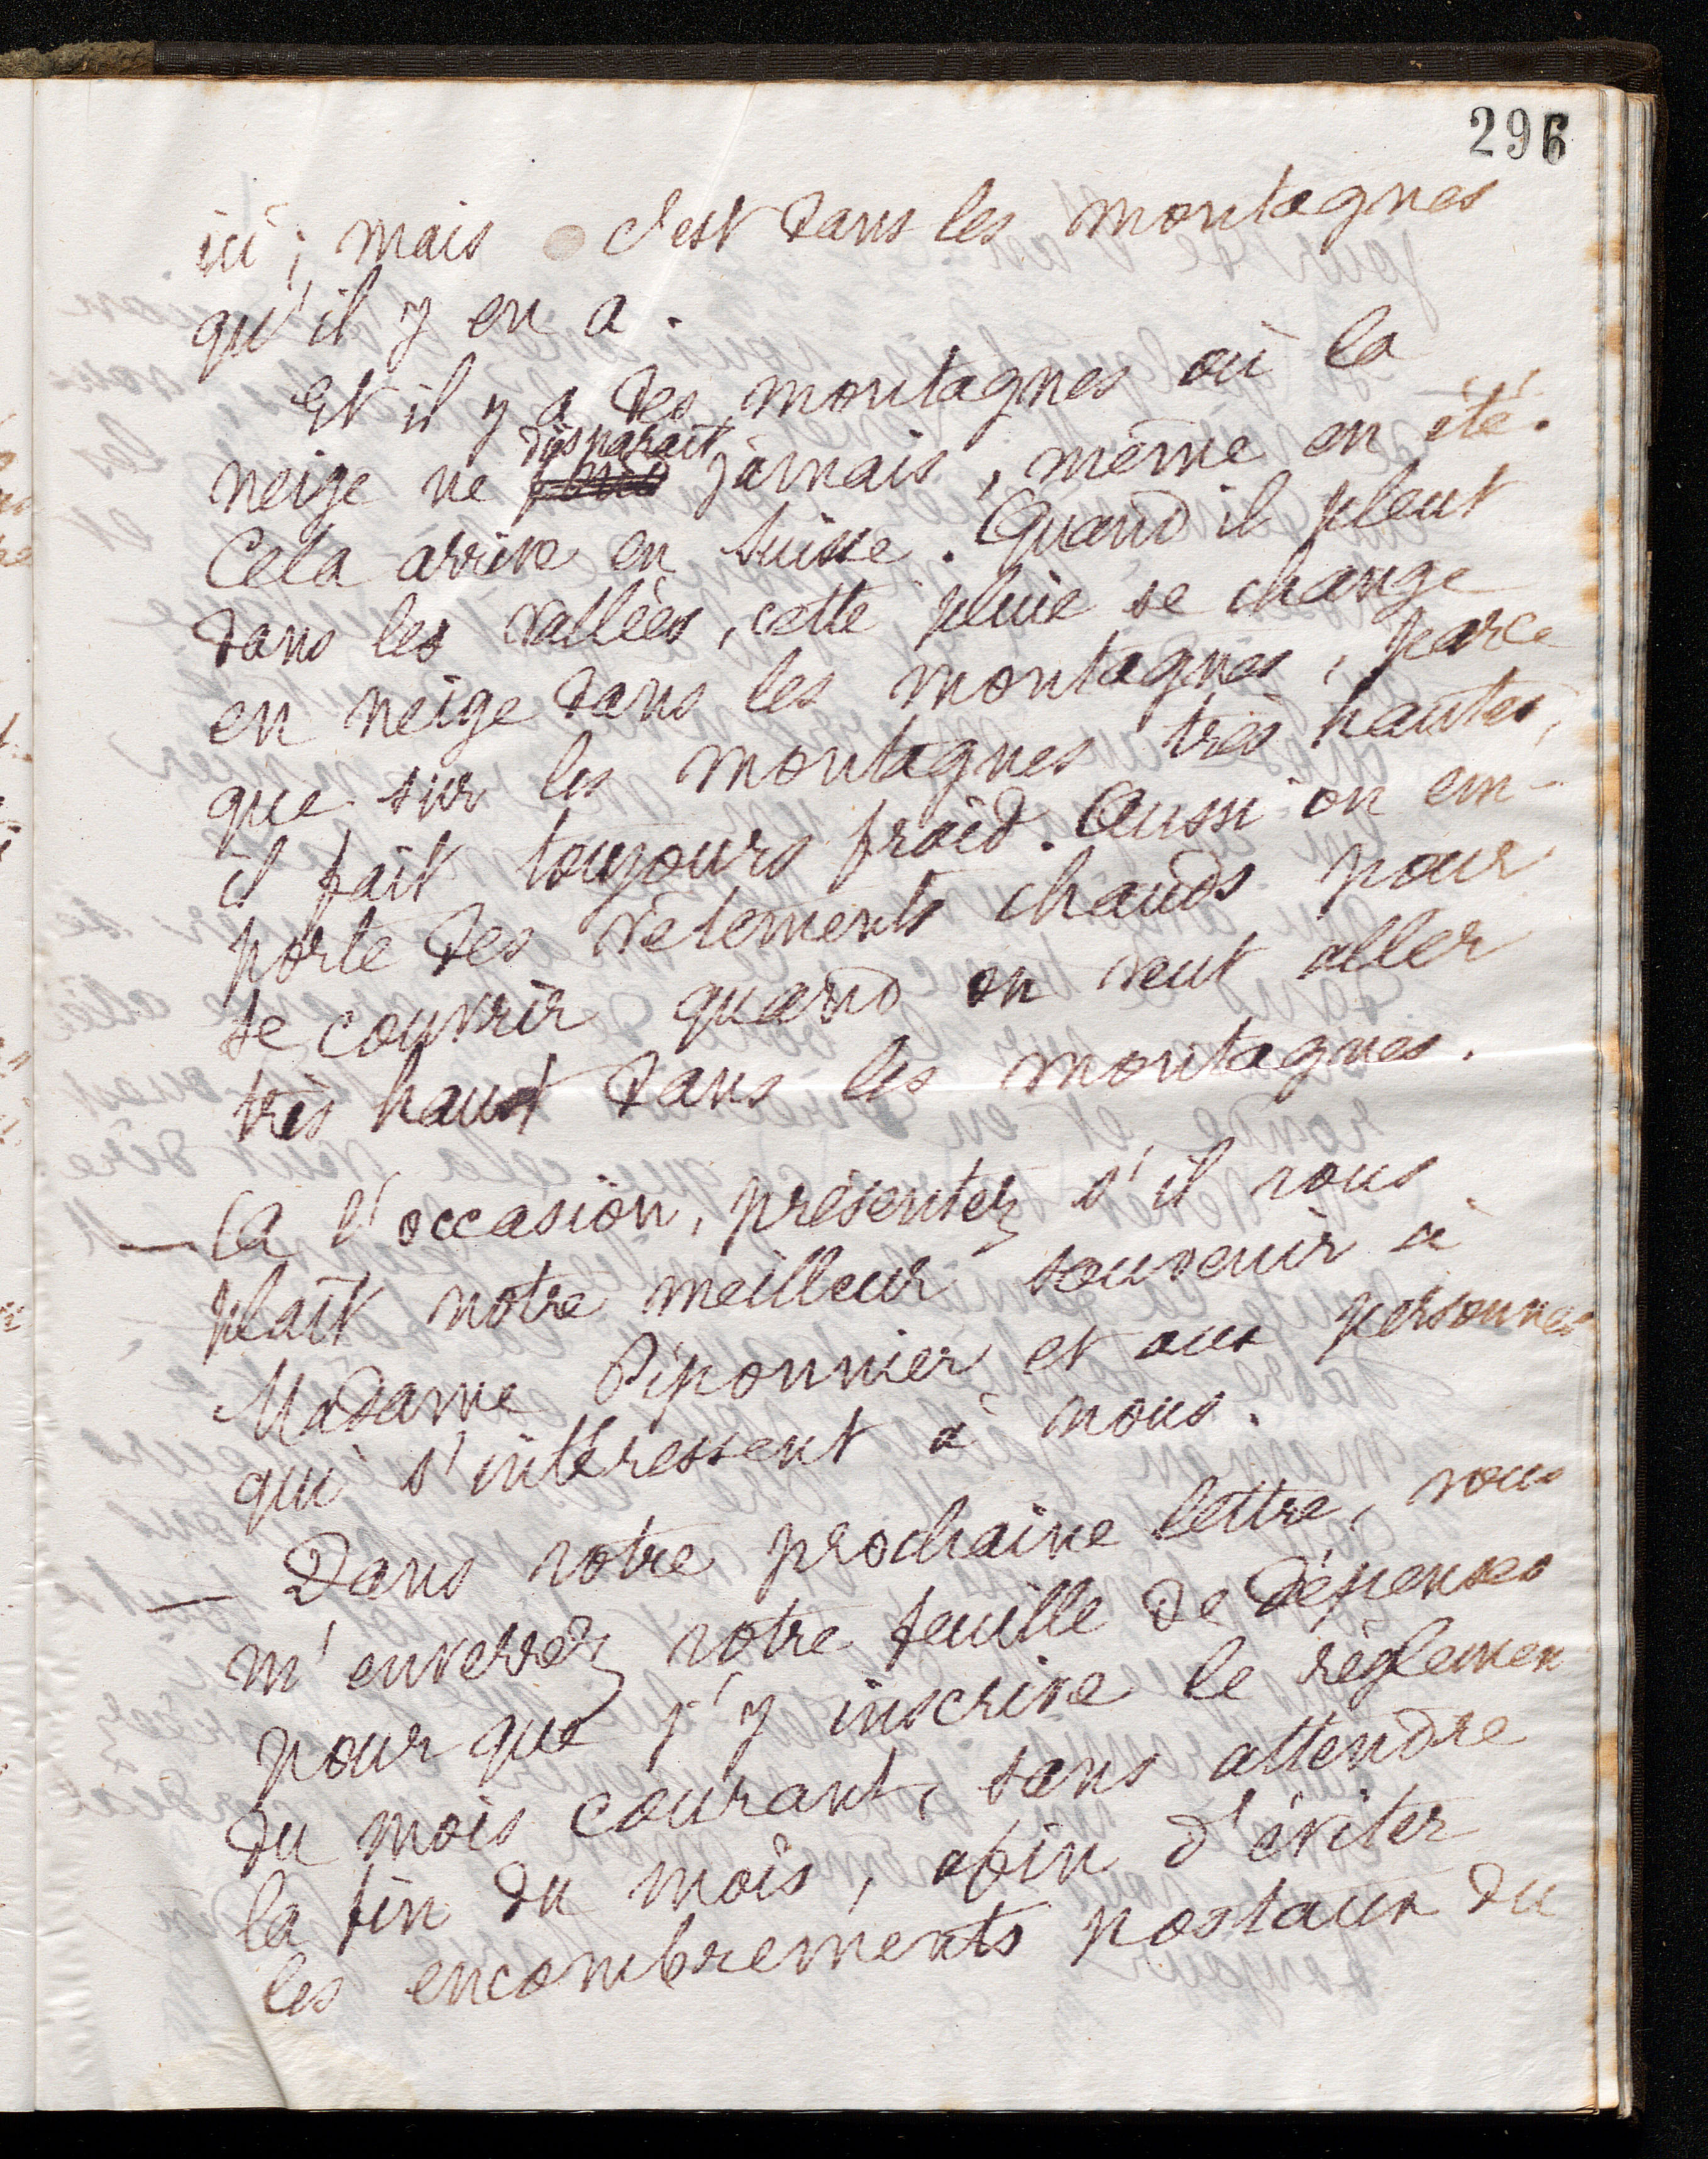 296
ici ; mais c'est dans les montagnes
qu'il y en a.
Et il y a des montagnes où la
disparait
neige ne fond jamais, même en été.
Cela arrive en Suisse. Quand il pleut
dans les vallées, cette pluie se change
en neige dans les montagnes, parce
que sur les montagnes très hautes,
il fait toujours froid. Aussi on em-
porte des vêtements chauds pour
se couvrir quand on veut aller
très haut dans les montagnes.
— A l'occasion, présentez s'il vous
plaît notre meilleur souvenir à
Madame Piponnier et aux personnes
qui s'intéressent à nous.
— Dans votre prochaine lettre, vous
m'enverrez votre feuille de dépenses
pour que j'y inscrive le règlemen
du mois courant, sans attendre
la fin du mois, afin d'éviter
les encombrements postaux du